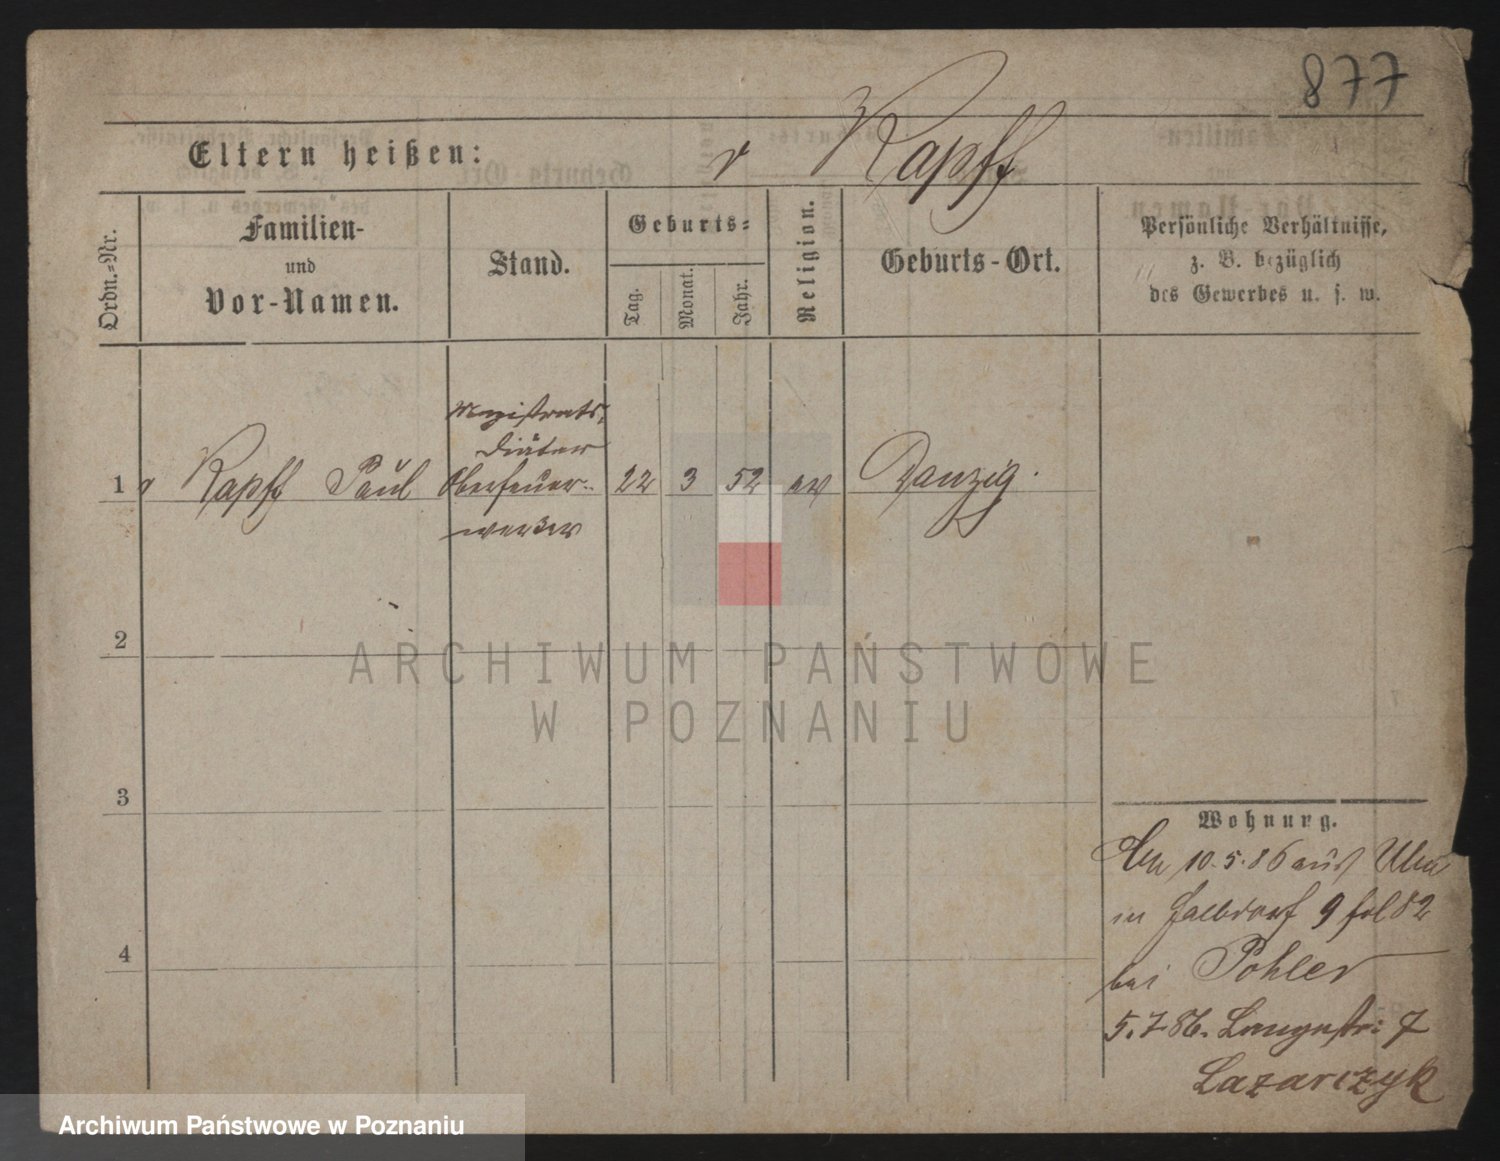 877
Eltern heißen: v Kapff
Ordn.-Nr.
Familien-
und
Vor-Namen.
Stand.
Geburts-
Tag.
Monat.
Jahr.
Religion.
Geburts-Ort.
Persönliche Verhältnisse,
z. B. bezüglich
des Gewerbes u. s. w.
Magistrats-
Diätar
1 v Kapff Paul Oberfeuer- 22 3 52 ev Danzig.
werker
2
ARCHIWUM PAŃSTWOWE
W POZNANIU
3
Wohnung.
10.5.86 aus Ulm
in 9 fol 82
4
bei Pohler
5.7.86. Langestr: 7
Lazarczyk
Archiwum Państwowe w Poznaniu